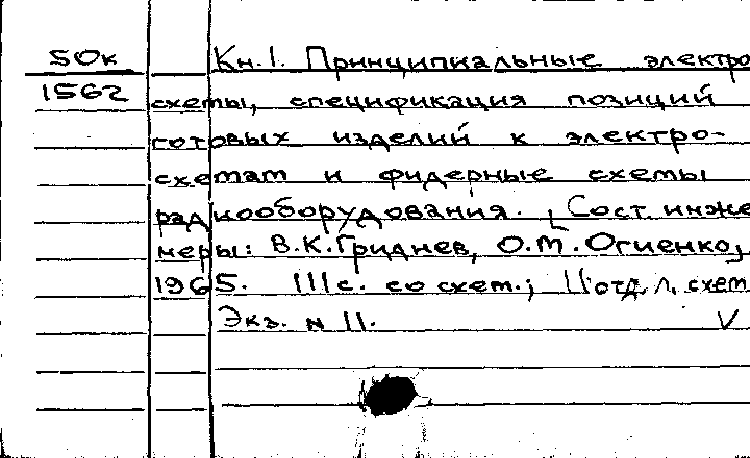 50к Кн. I. Принципиальные электро
1562 схемы, спецификация позиций
готовых изделий к электро-
схемам и фидерные схемы
радиооборудования. [Сост. инже
неры: В.К.Гриднев, О.М. Огиенко],
1965. 111с. со схем.; 11 отд. л. схем
Экз. N 11. V